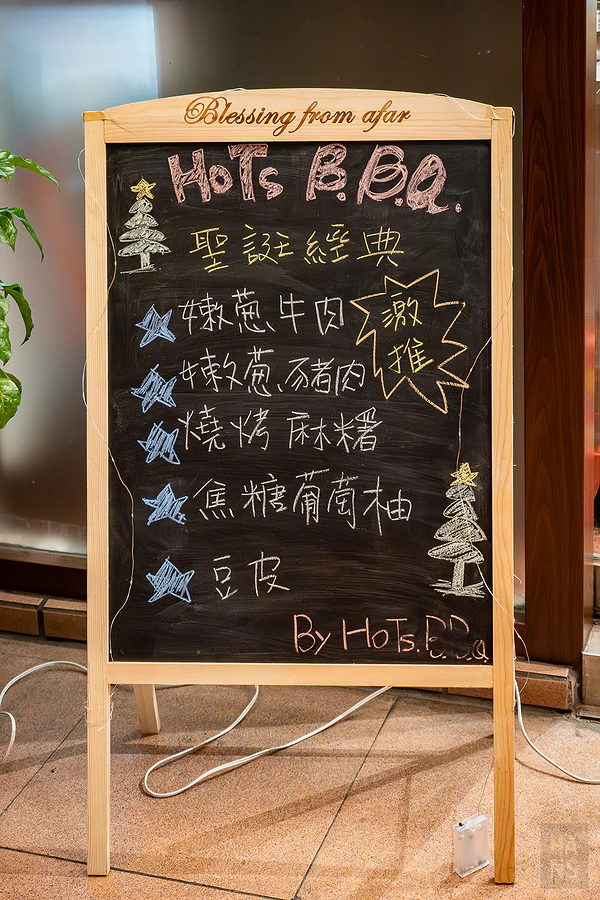 Blessing from afar
HoTs B.B.Q.
聖誕經典
嫩蔥牛肉
激推
嫩蔥豬肉
燒烤麻糬
焦糖葡萄柚
豆皮
By HoTs.B.B.Q.
HANS